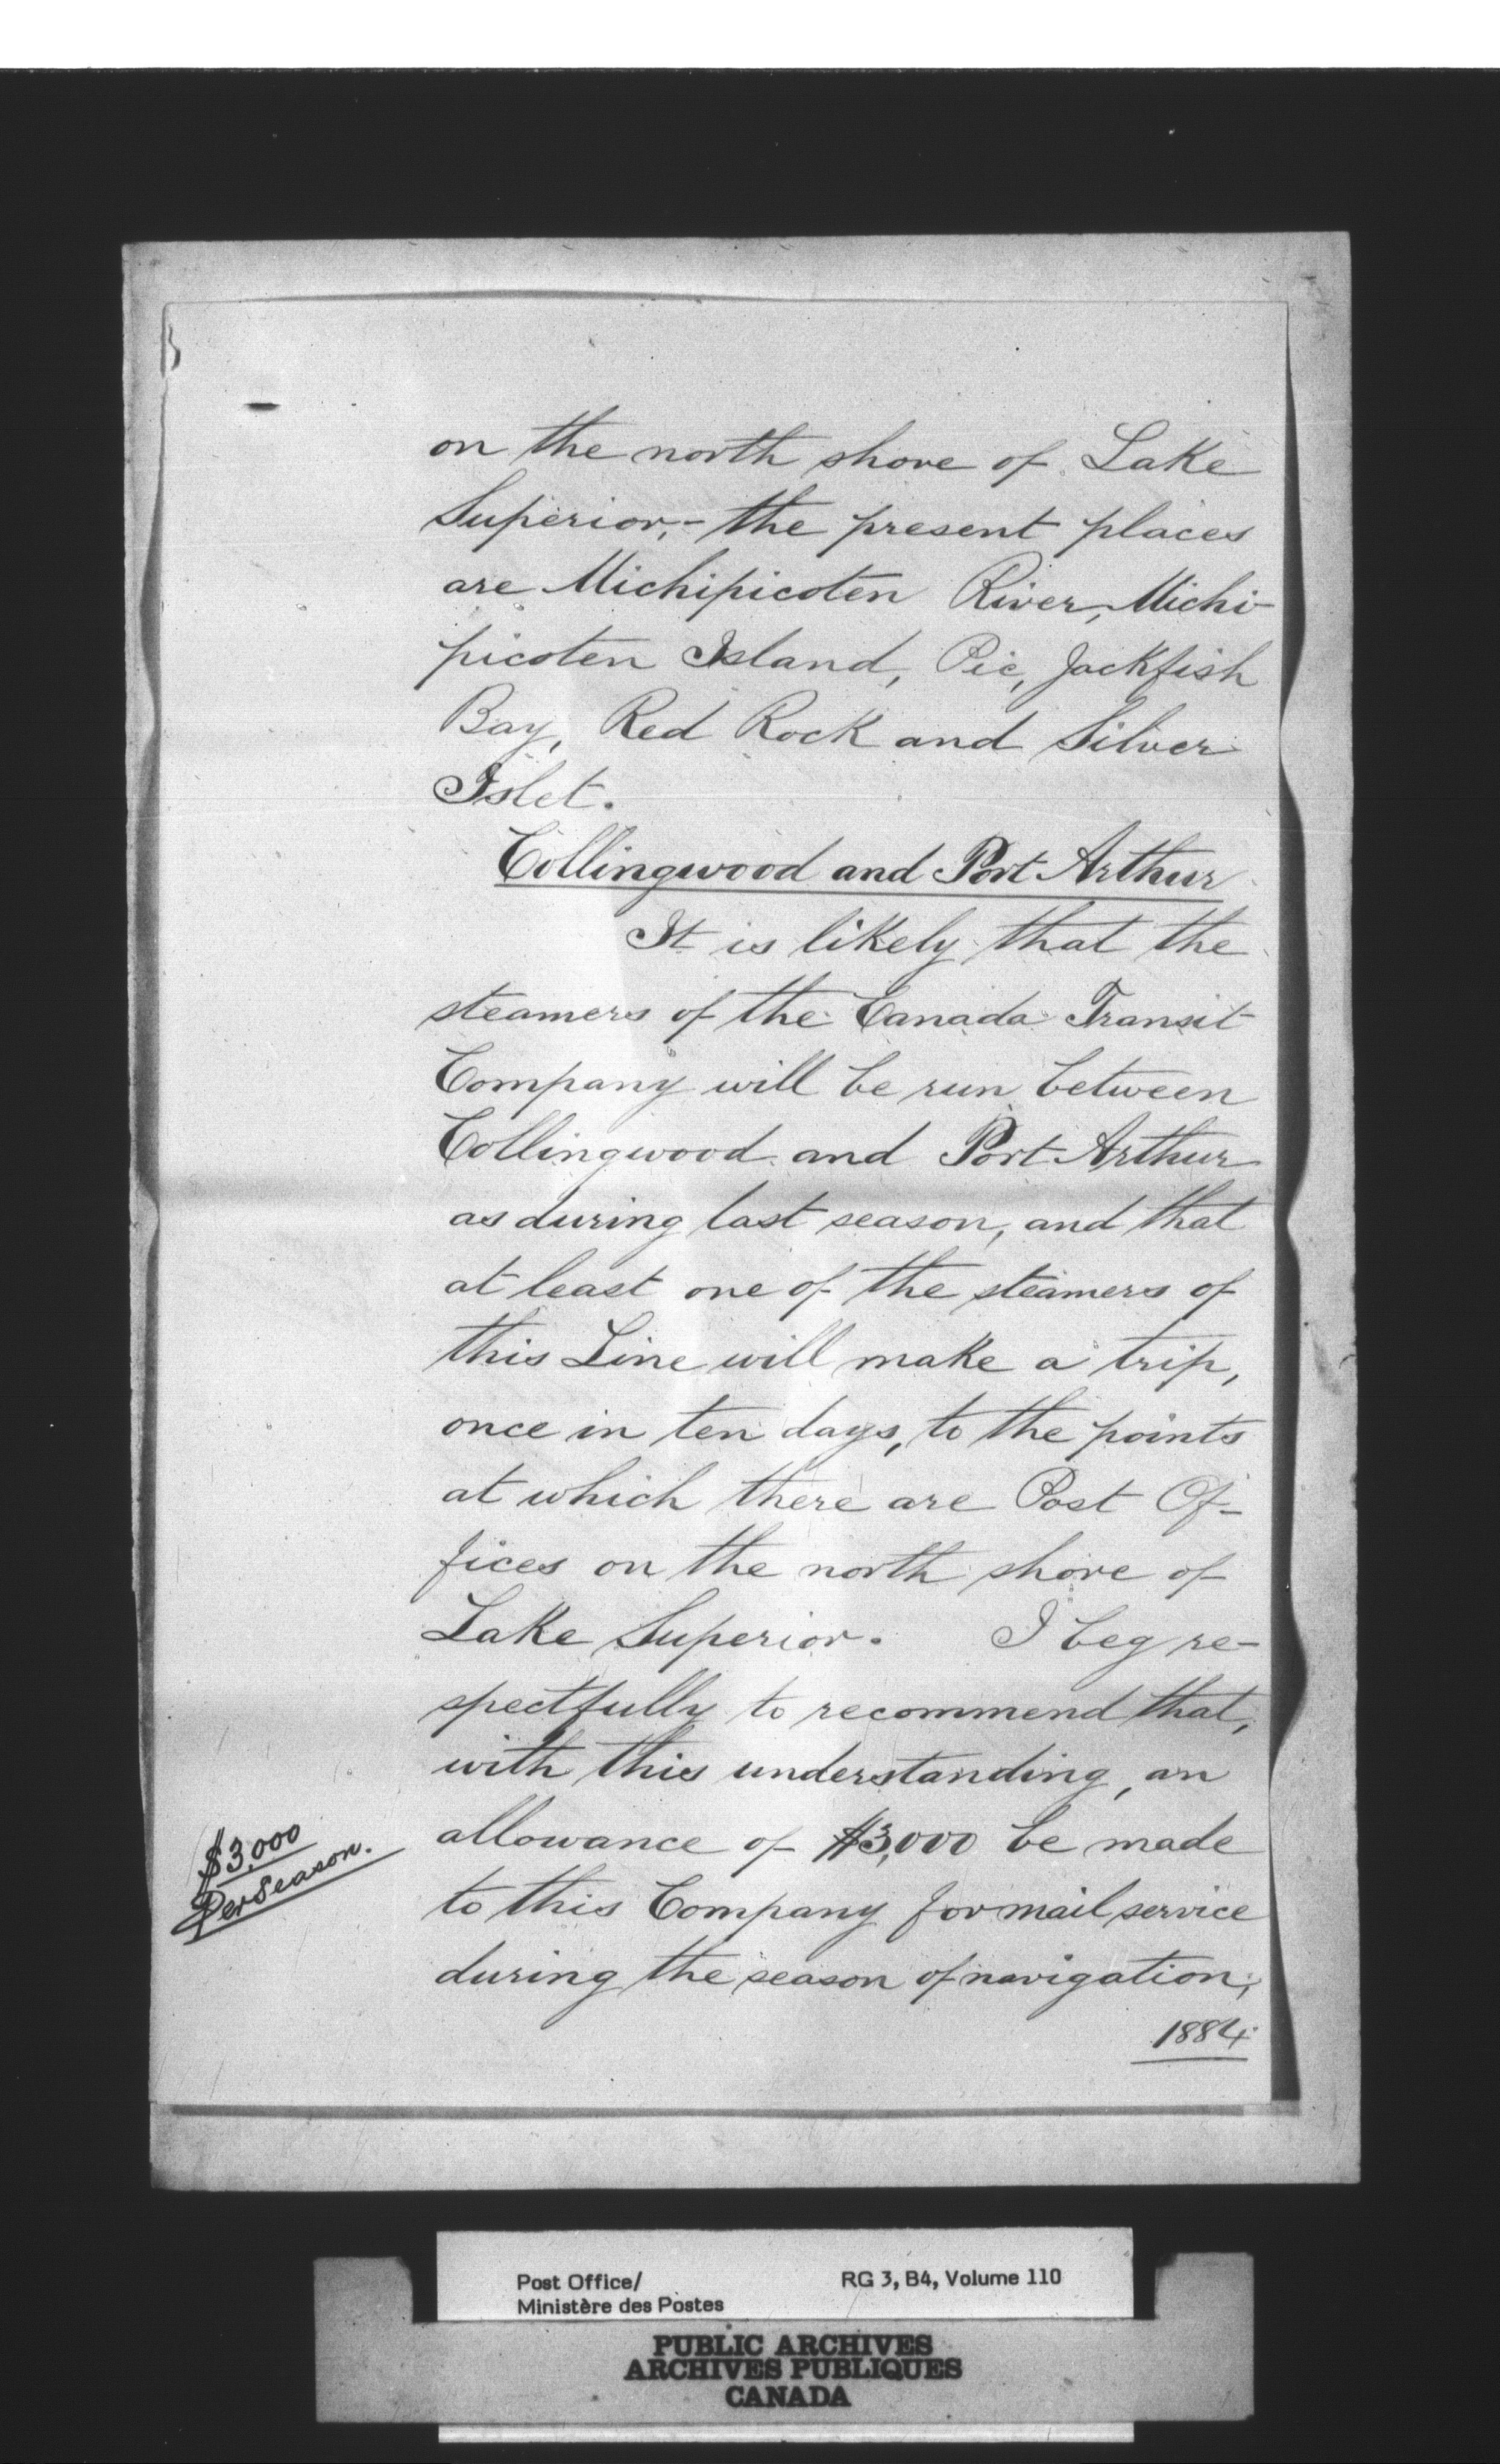 on the north shore of Lake
Superior,- the present places
are Michipicoten River, Michi-
picoten Island, Pic, Jackfish
Bay, Red Rock and Silver
Islet.
Collingwood and Port Arthur
It is likely that the
steamers of the Canada Transit
Company will be run between
Collingwood and Port Arthur
as during last season, and that
at least one of the steamers of
this Line will make a trip,
once in ten days, to the points
at which there are Post Of-
fices on the north shore of
Lake Superior. I beg re-
spectfully to recommend that,
with this understanding, an
allowance of $3,000 be made
to this Company for mail service
during the season of navigation,
1884
$3,000
Per Season.
Post Office/
Ministère des Postes
RG 3, B4, Volume 110
PUBLIC ARCHIVES
ARCHIVES PUBLIQUES
CANADA